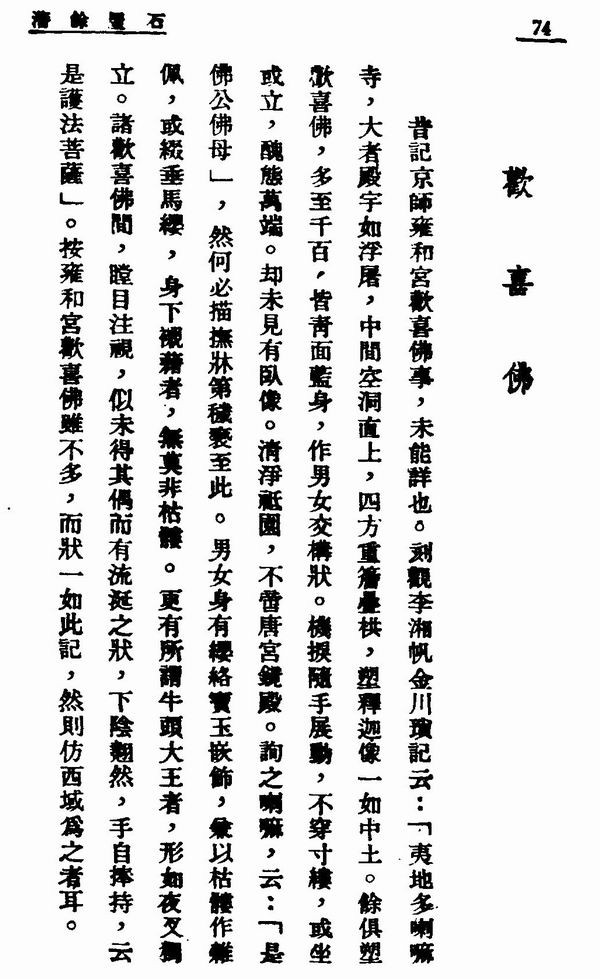 石璽餘瀋
74
歡喜佛
昔記京師雍和宮歡喜佛事，未能詳也。刻觀李湘帆金川瑣記云：「夷地多喇嘛
寺，大者殿宇如浮屠，中間空洞直上，四方重簷疊栱，塑釋迦像一如中土。餘俱塑
歡喜佛，多至千百，皆靑面藍身，作男女交構狀。機捩隨手展動，不穿寸縷，或坐
或立，醜態萬端。却未見有臥像。淸淨祗園，不啻唐宮鏡殿。詢之喇嘛，云：「是
佛公佛母」，然何必描撫牀第穢褻至此。男女身有纓絡寶玉嵌飾，兼以枯髏作雜
佩，或綴垂馬纓，身下襯藉者，無莫非枯髏。更有所謂牛頭大王者，形如夜叉獨
立。諸歡喜佛間，瞠目注視，似未得其偶而有流涎之狀，下陰翹然，手自捧持，云
是護法菩薩」。按雍和宮歡喜佛雖不多，而狀一如此記，然則仿西域爲之者耳。